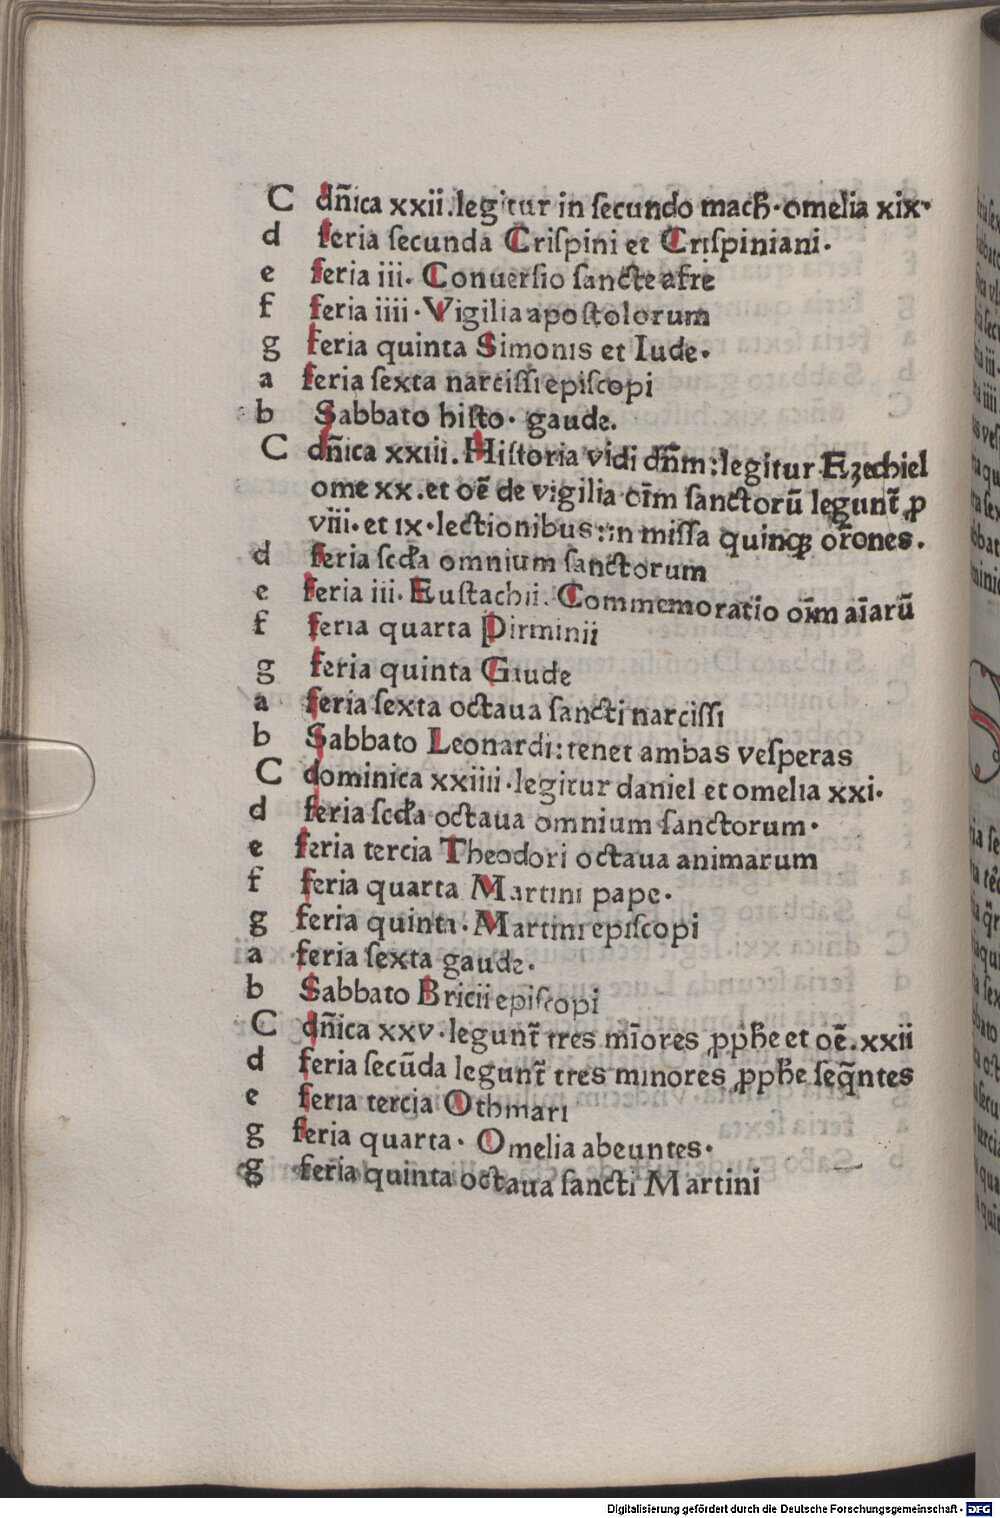 C dn̄ica xxii.legitur in ſecundo mach̄·omelia xix·
d feria ſecunda Criſpini et Criſpiniani·
e feria iii. Conuerſio ſancte afre
f feria iiii·Vigilia apoſtolorum
g feria quinta Simonis et Iude·
a feria ſexta narciſſi epiſcopi
b Sabbato hiſto· gaude.
C dn̄ica xxiii. Hiſtoria vidi dn̄m:legitur Ezechiel
ome xx.et oē de vigilia oīm ſanctorū legunt̄ ꝑ
viii·et ix·lectionibus:in miſſa quinqꝫ or̄ones.
d feria ſcd̄a omnium ſanctorum
e feria iii. Euſtachii. Commemoratio oīm aīarū
f feria quarta Pirminii
g feria quinta Gaude
a feria ſexta octaua ſancti narciſſi
b Sabbato Leonardi:tenet ambas veſperas
C dominica xxiiii·legitur daniel et omelia xxi·
d feria ſcd̄a octaua omnium ſanctorum·
e feria tercia Theodori octaua animarum
f feria quarta Martini pape·
g feria quinta·Martini epiſcopi
a feria ſexta gaude·
b Sabbato Bricii epiſcopi
C dn̄ica xxv·legunt̄ tres mīores ꝓph̄e et oē.xxii
d feria ſecūda legunt̄ tres minores ꝓph̄e ſeq̄ntes
e feria tercia Othmari
g feria quarta· Omelia abeuntes·
g feria quinta octaua ſancti Martini
Digitalisierung gefördert durch die Deutsche Forschungsgemeinschaft - DFG